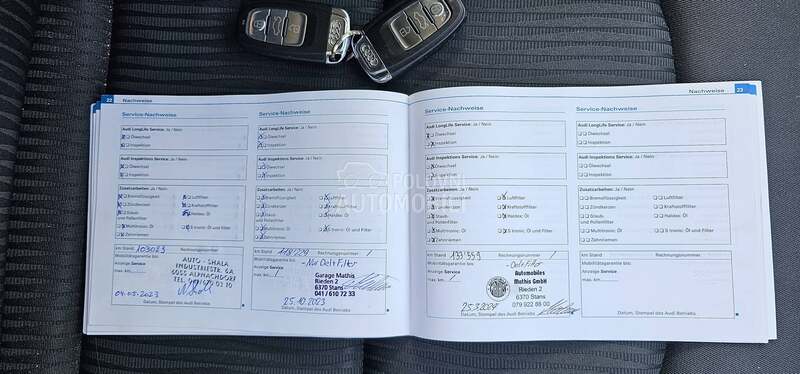 22 Nachweise
Service-Nachweise
Audi LongLife Service: Ja / Nein
Ölwechsel
Inspektion
Audi Inspektions Service: Ja / Nein
Ölwechsel
Inspektion
Zusatzarbeiten: Ja / Nein
Bremsflüssigkeit
Luftfilter
Zündkerzen
Kraftstofffilter
Staub-
und Pollenfilter
Haldex: Öl
Multitronic: Öl
S tronic: Öl und Filter
Zahnriemen
km Stand: 103023
Rechnungsnummer:
Mobilitätsgarantie bis:
Anzeige Service
max. km:
AUTO - SHALA
INDUSTRIESTR. 6A
6055 ALPNACHDORF
04.05.2023
Datum, Stempel des Audi Betriebs
Service-Nachweise
Audi LongLife Service: Ja / Nein
Ölwechsel
Inspektion
Audi Inspektions Service: Ja / Nein
Ölwechsel
Inspektion
Zusatzarbeiten: Ja / Nein
Bremsflüssigkeit
Luftfilter
Zündkerzen
Kraftstofffilter
Staub-
und Pollenfilter
Haldex: Öl
Multitronic: Öl
S tronic: Öl und Filter
Zahnriemen
km Stand: 118'229
Rechnungsnummer:
Mobilitätsgarantie bis:
Anzeige Service
max. km:
Garage Mathis
Rieden 2
6370 Stans
041 / 610 72 33
25.10.2023
Datum, Stempel des Audi Betriebs
Nachweise 23
Service-Nachweise
Audi LongLife Service: Ja / Nein
Ölwechsel
Inspektion
Audi Inspektions Service: Ja / Nein
Ölwechsel
Inspektion
Zusatzarbeiten: Ja / Nein
Bremsflüssigkeit
Luftfilter
Zündkerzen
Kraftstofffilter
Staub-
und Pollenfilter
Haldex: Öl
Multitronic: Öl
S tronic: Öl und Filter
Zahnriemen
km Stand: 133'359
Rechnungsnummer:
Mobilitätsgarantie bis:
Anzeige Service
max. km:
Automobiles
Mathis GmbH
Rieden 2
6370 Stans
079 922 88 00
25.3.2024
Datum, Stempel des Audi Betriebs
Service-Nachweise
Audi LongLife Service: Ja / Nein
Ölwechsel
Inspektion
Audi Inspektions Service: Ja / Nein
Ölwechsel
Inspektion
Zusatzarbeiten: Ja / Nein
Bremsflüssigkeit
Luftfilter
Zündkerzen
Kraftstofffilter
Staub-
und Pollenfilter
Haldex: Öl
Multitronic: Öl
S tronic: Öl und Filter
Zahnriemen
km Stand:
Rechnungsnummer:
Mobilitätsgarantie bis:
Anzeige Service
max. km:
Datum, Stempel des Audi Betriebs
POLOVNI
AUTOMOBILI